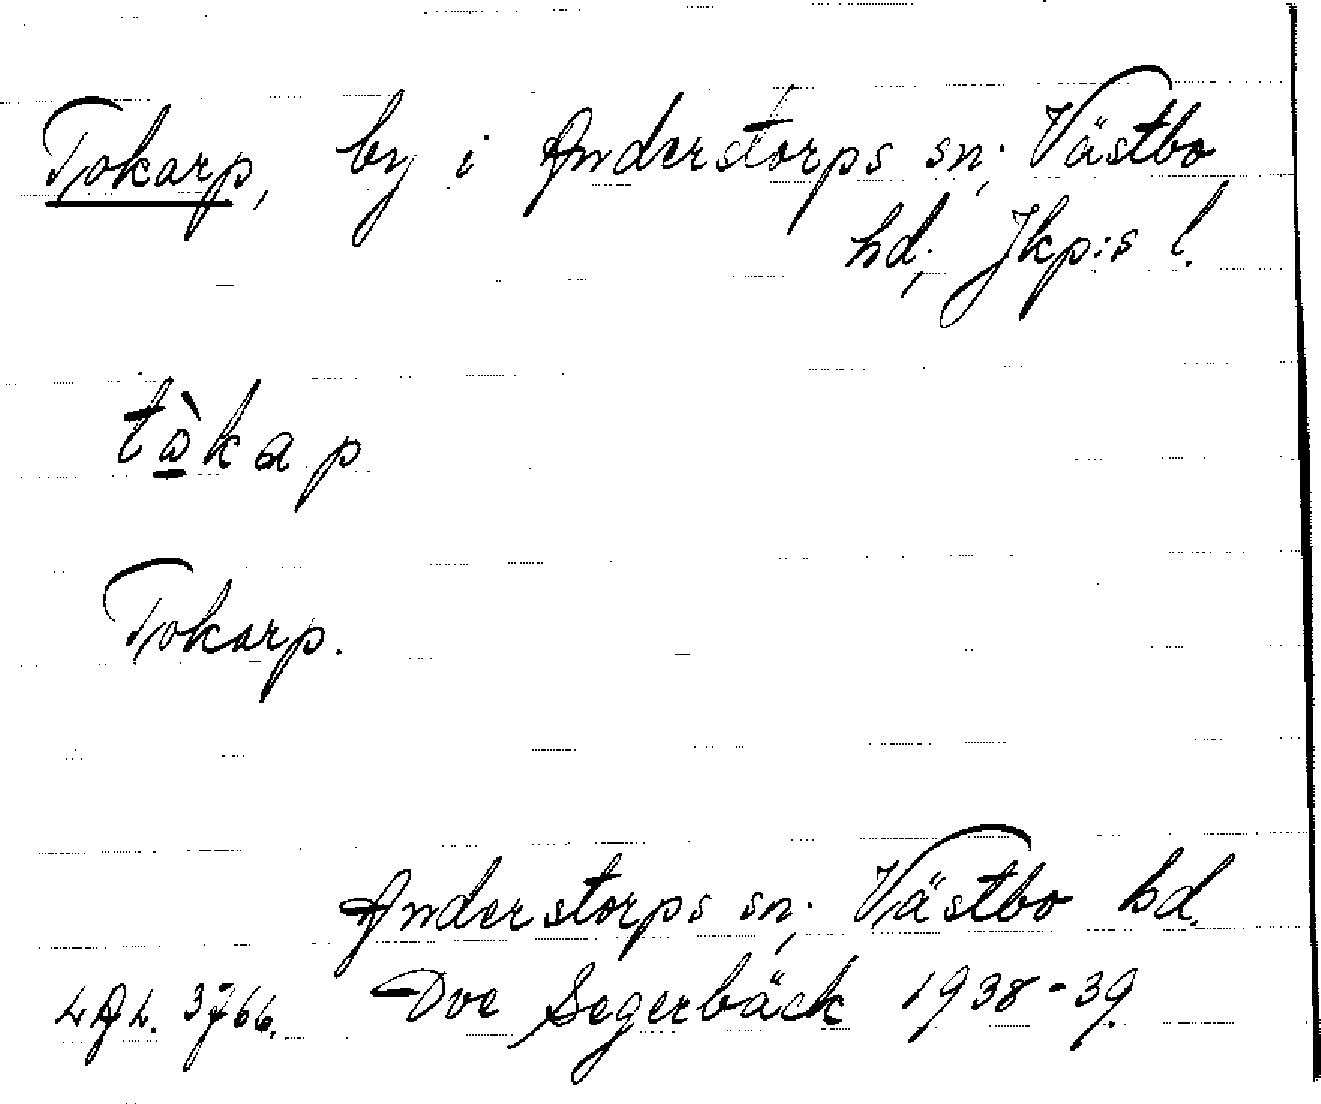 Tokarp, by i Anderstorps sn; Västbo
hd; Jkp:s l.
tò̲kap
Tokarp.
Anderstorps sn; Västbo hd.
3766. Ove Segerbäck 1938-39.